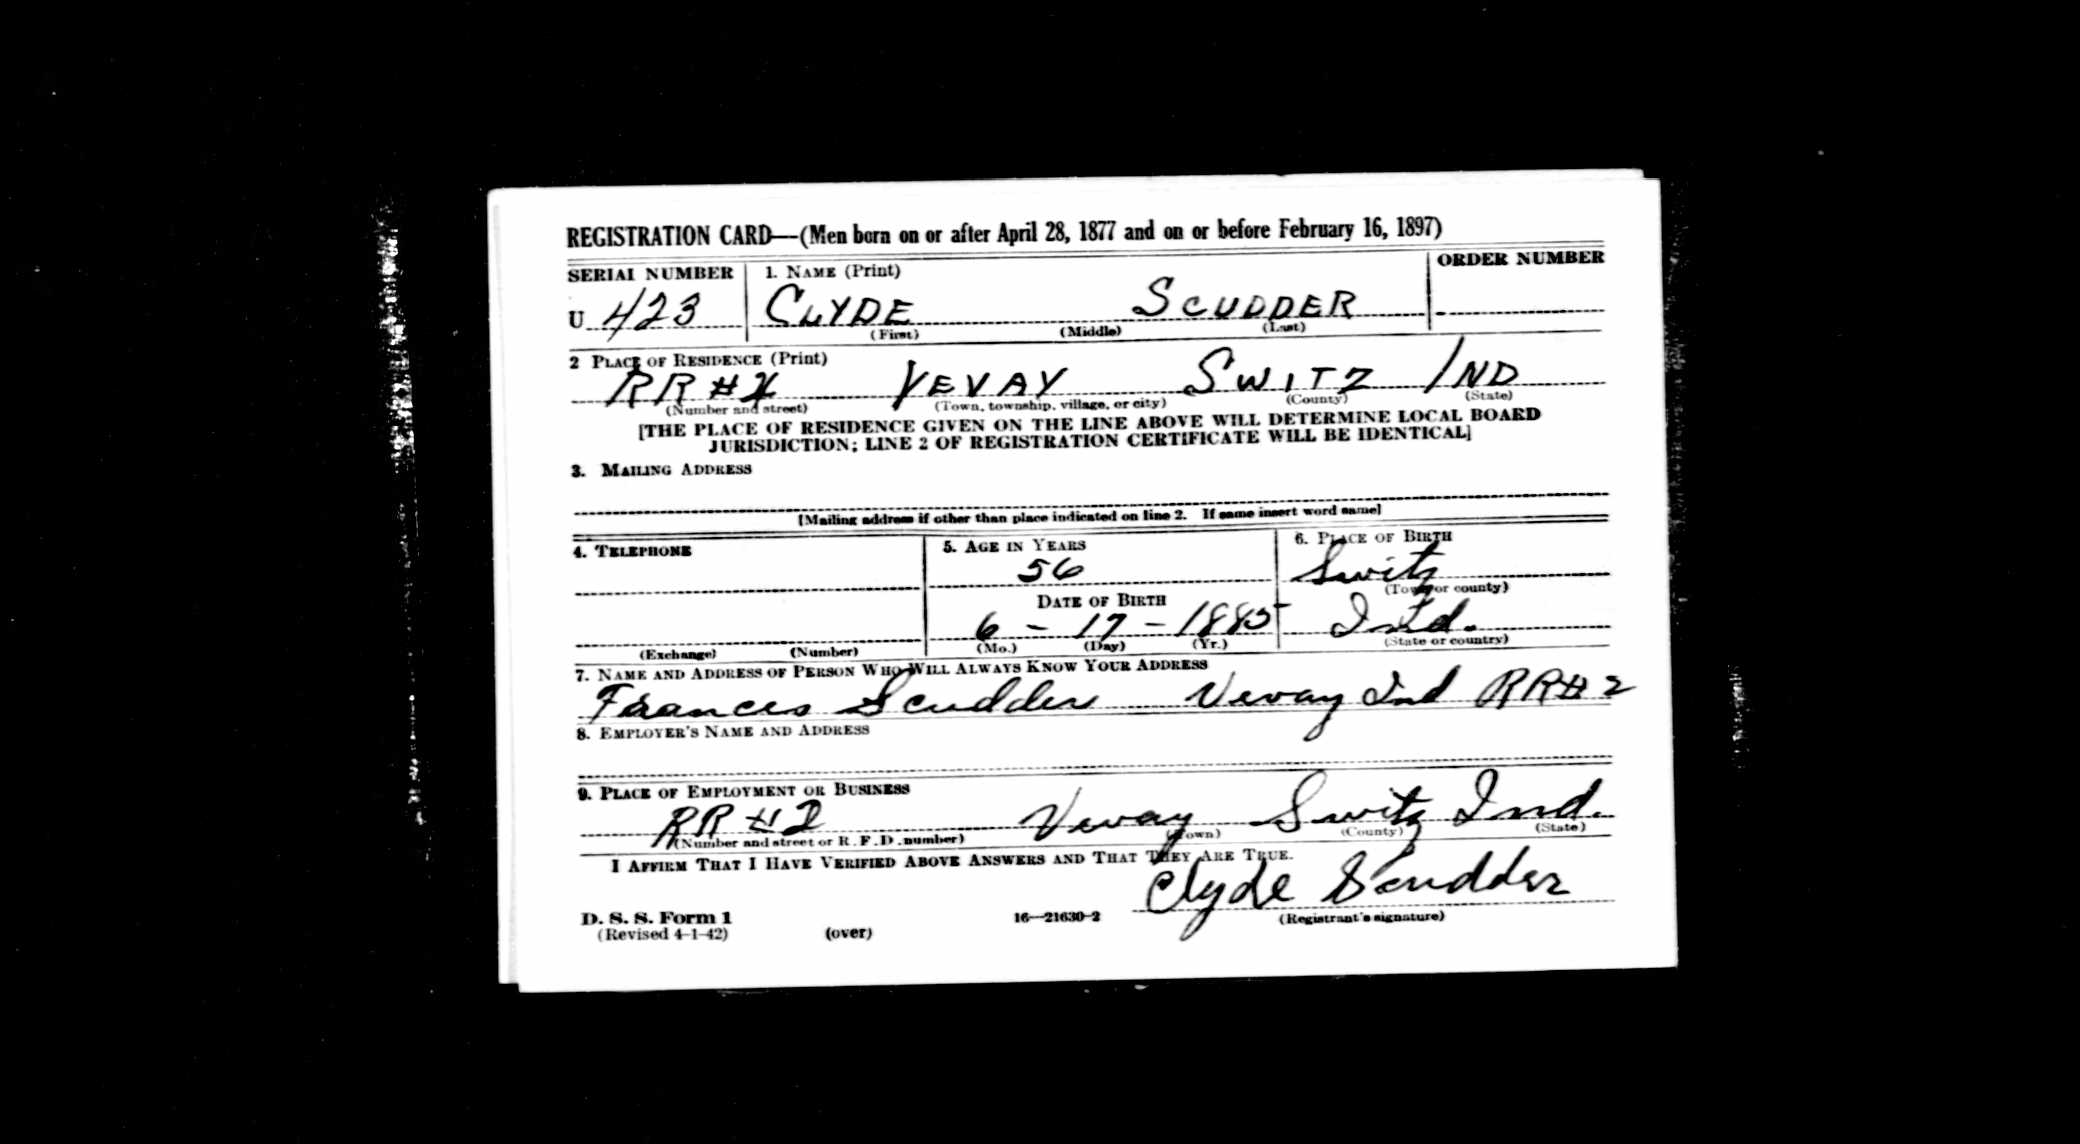 REGISTRATION CARD—(Men born on or after April 28, 1877 and on or before February 16, 1897)
SERIAL NUMBER 1. NAME (Print) ORDER NUMBER
U 423 CLYDE SCUDDER
(First) (Middle) (Last)
2 PLACE OF RESIDENCE (Print)
RR #2 VEVAY SWITZ IND
(Number and street) (Town, township, village, or city) (County) (State)
[THE PLACE OF RESIDENCE GIVEN ON THE LINE ABOVE WILL DETERMINE LOCAL BOARD
JURISDICTION; LINE 2 OF REGISTRATION CERTIFICATE WILL BE IDENTICAL]
3. MAILING ADDRESS
[Mailing address if other than place indicated on line 2. If same insert word same]
4. TELEPHONE 5. AGE IN YEARS 6. PLACE OF BIRTH
56 Switz
(Town or county)
DATE OF BIRTH
6 - 17 - 1885 Ind.
(Exchange) (Number) (Mo.) (Day) (Yr.) (State or country)
7. NAME AND ADDRESS OF PERSON WHO WILL ALWAYS KNOW YOUR ADDRESS
Frances Scudder Vevay Ind RR# 2
8. EMPLOYER'S NAME AND ADDRESS
9. PLACE OF EMPLOYMENT OR BUSINESS
RR #2 Vevay Switz Ind.
(Number and street or R. F. D. number) (Town) (County) (State)
I AFFIRM THAT I HAVE VERIFIED ABOVE ANSWERS AND THAT THEY ARE TRUE.
Clyde Scudder
D. S. S. Form 1 16—21630-2 (Registrant's signature)
(Revised 4-1-42) (over)